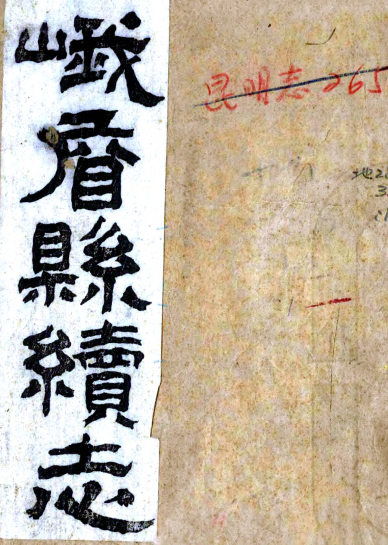 峨眉縣續志
昆明志265
地2
3